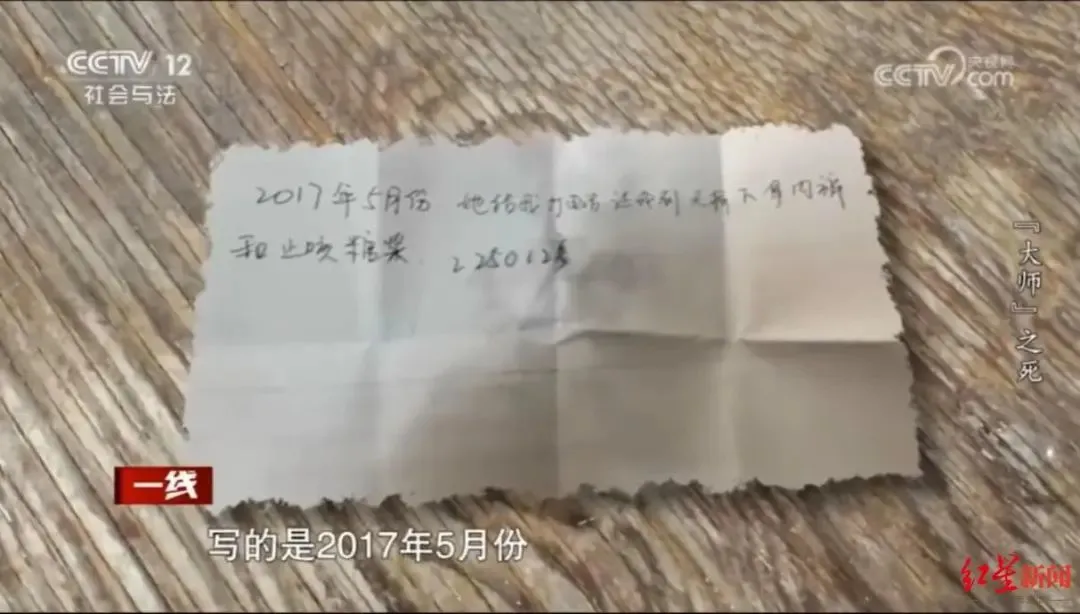 CCTV 12
社会与法
央视网
CCTV.com
2017年5月份 她给我打电话 让我到 下身内裤
和止咳糖浆
『大师』之死
一线
写的是2017年5月份
红星新闻